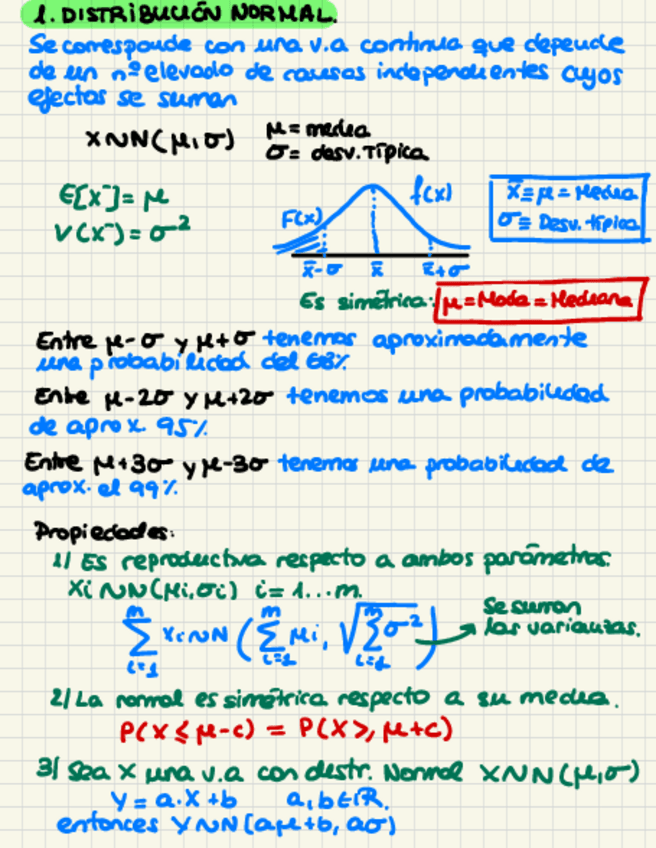 1. DISTRIBUCIÓN NORMAL.
Se corresponde con una v.a continua que depende
de un nº elevado de causas independientes cuyos
efectos se suman
X∼N(μ,σ) μ = media
σ = desv. típica
E[X] = μ
V(X) = σ²
F(x) f(x)
x̄-σ x̄ x̄+σ
x̄ ≡ μ = Media
σ ≡ Desv. típica
Es simétrica: μ = Moda = Mediana
Entre μ-σ y μ+σ tenemos aproximadamente
una probabilidad del 68%
Entre μ-2σ y μ+2σ tenemos una probabilidad
de aprox. 95%
Entre μ+3σ y μ-3σ tenemos una probabilidad de
aprox. el 99%.
Propiedades:
1/ Es reproductiva respecto a ambos parámetros.
Xi∼N(μi,σi) i=1...m.
∑_{i=1}^{m} xi∼N(∑_{i=1}^{m} μi, √(∑_{i=1}^{m} σ²)) → Se suman
las varianzas.
2/ La normal es simétrica respecto a su media.
P(X ≤ μ-c) = P(X ≥ μ+c)
3/ Sea X una v.a con destr. Normal X∼N(μ,σ)
Y = a.X+b a,b∈ℝ.
entonces Y∼N(aμ+b, aσ)